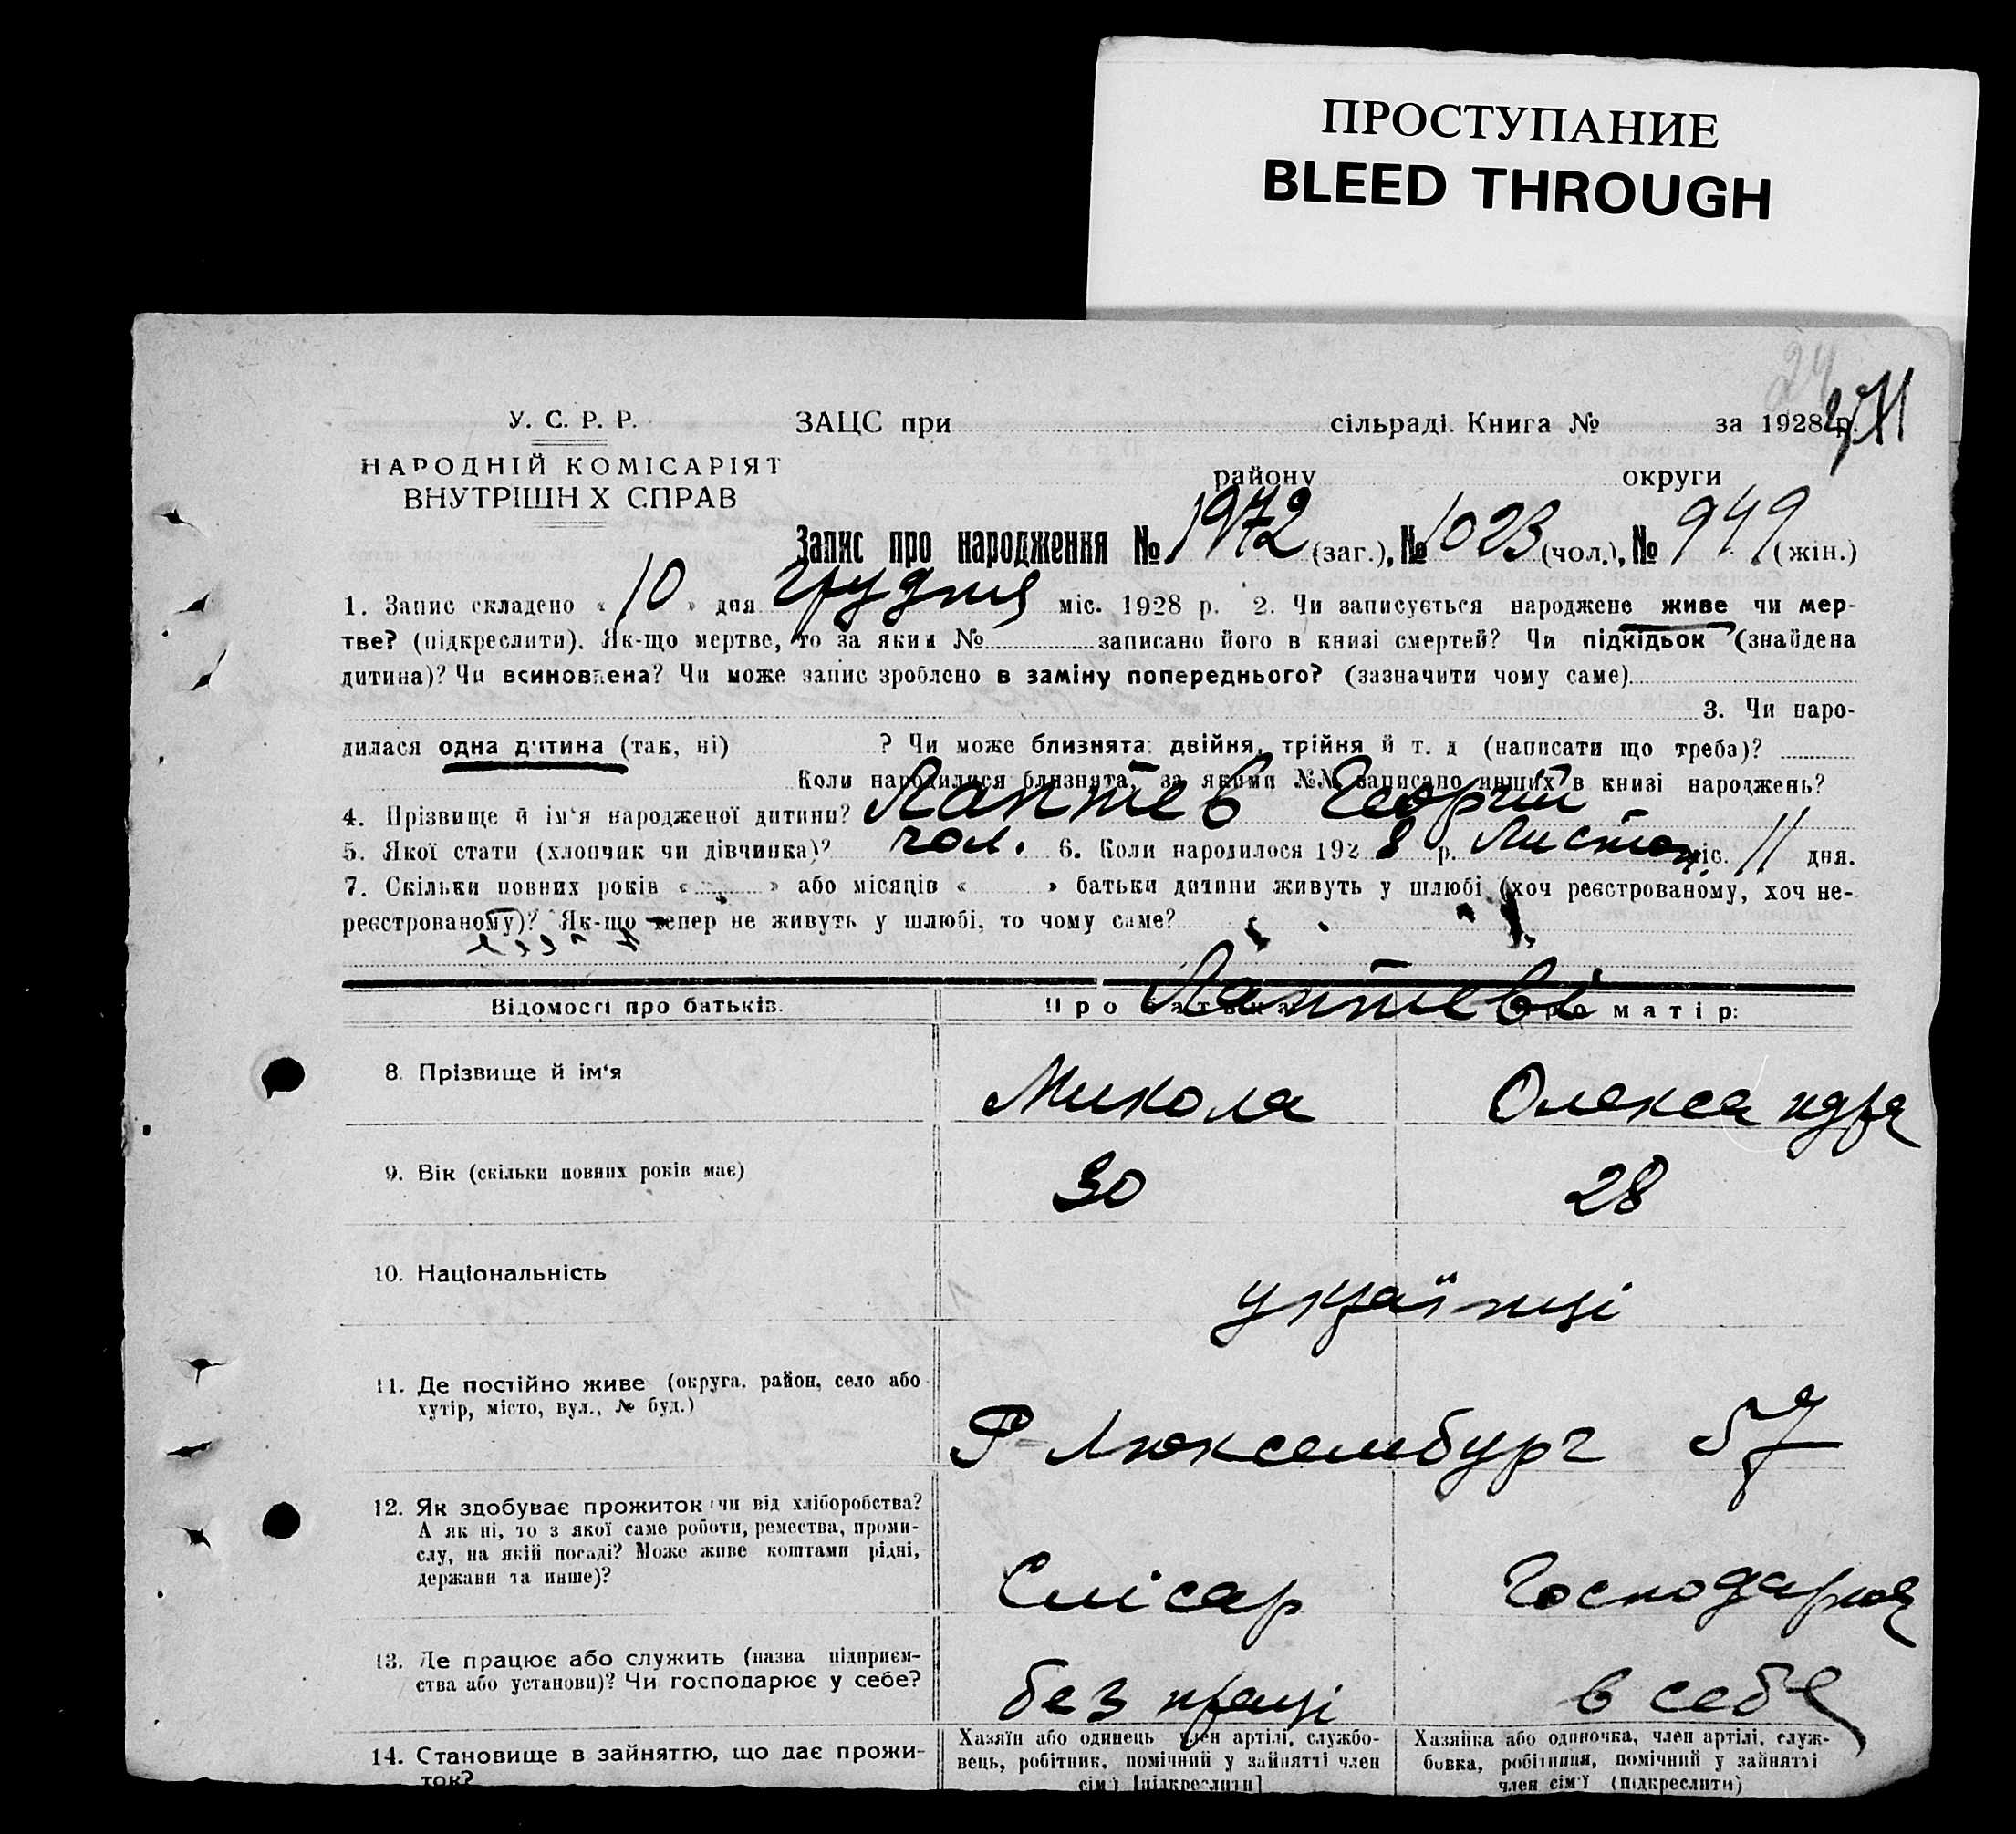 ПРОСТУПАНИЕ
BLEED THROUGH
24
У. С. Р. Р. ЗАЦС при сільраді. Книга № за 1928 р.
НАРОДНІЙ КОМІСАРІЯТ
району округи
ВНУТРІШН Х СПРАВ
Запис про народження № 1972 (заг.), № 1023 (чол.), № 949 (жін.)
1. Запис складено « 10 » дня грудня міс. 1928 р. 2. Чи записується народжене живе чи мер-
тве? (підкреслити). Як-що мертве, то за яким № записано його в книзі смертей? Чи підкідьок (знайдена
дитина)? Чи всиновлена? Чи може запис зроблено в заміну попереднього? (зазначити чому саме)
3. Чи наро-
дилася одна дитина (так, ні) ? Чи може близнята: двійня, трійня й т. д (написати що треба)?
Коли народилися близнята, за якими №№ записано инших в книзі народжень?
4. Прізвище й ім'я народженої дитини? Лаптев Георгій
5. Якої стати (хлопчик чи дівчинка)? чол. 6. Коли народилося 1928 р. Листоп. міс. 11 дня.
7. Скільки повних років « » або місяців « » батьки дитини живуть у шлюбі (хоч реєстрованому, хоч не-
реєстрованому)? Як-що тепер не живуть у шлюбі, то чому саме?
Лаптеві
Відомості про батьків. Про батька Про матір:
8. Прізвище й ім'я Микола Олександра
9. Вік (скільки повних років має) 30 28
10. Національність українці
11. Де постійно живе (округа, район, село або
хутір, місто, вул., № буд.) Р-Люксембург 57
12. Як здобуває прожиток (чи від хліборобства?
А як ні, то з якої саме роботи, ремества, проми-
слу, на якій посаді? Може живе коштами рідні,
держави та инше)? Слісар Господарює
13. Де працює або служить (назва підприєм-
ства або установи)? Чи господарює у себе? без праці в себе
14. Становище в зайняттю, що дає прожи-
ток?
Хазяїн або одинець член артілі, службо-
вець, робітник, помічний у зайнятті член
сім'ї [підкреслити]
Хазяйка або одиночка, член артілі, служ-
бовка, робітниця, помічний у зайнятті
член сім'ї (підкреслити)